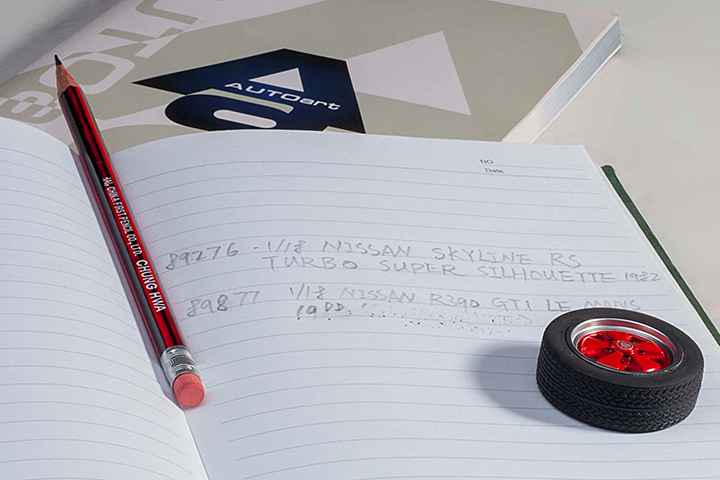 AUTOart
NO
Date
89276 - 1/18 NISSAN SKYLINE RS
TURBO SUPER SILHOUETTE 1982
89877 1/18 NISSAN R390 GT1 LE MANS
CHINA FIRST PENCIL CO., LTD. CHUNG HWA